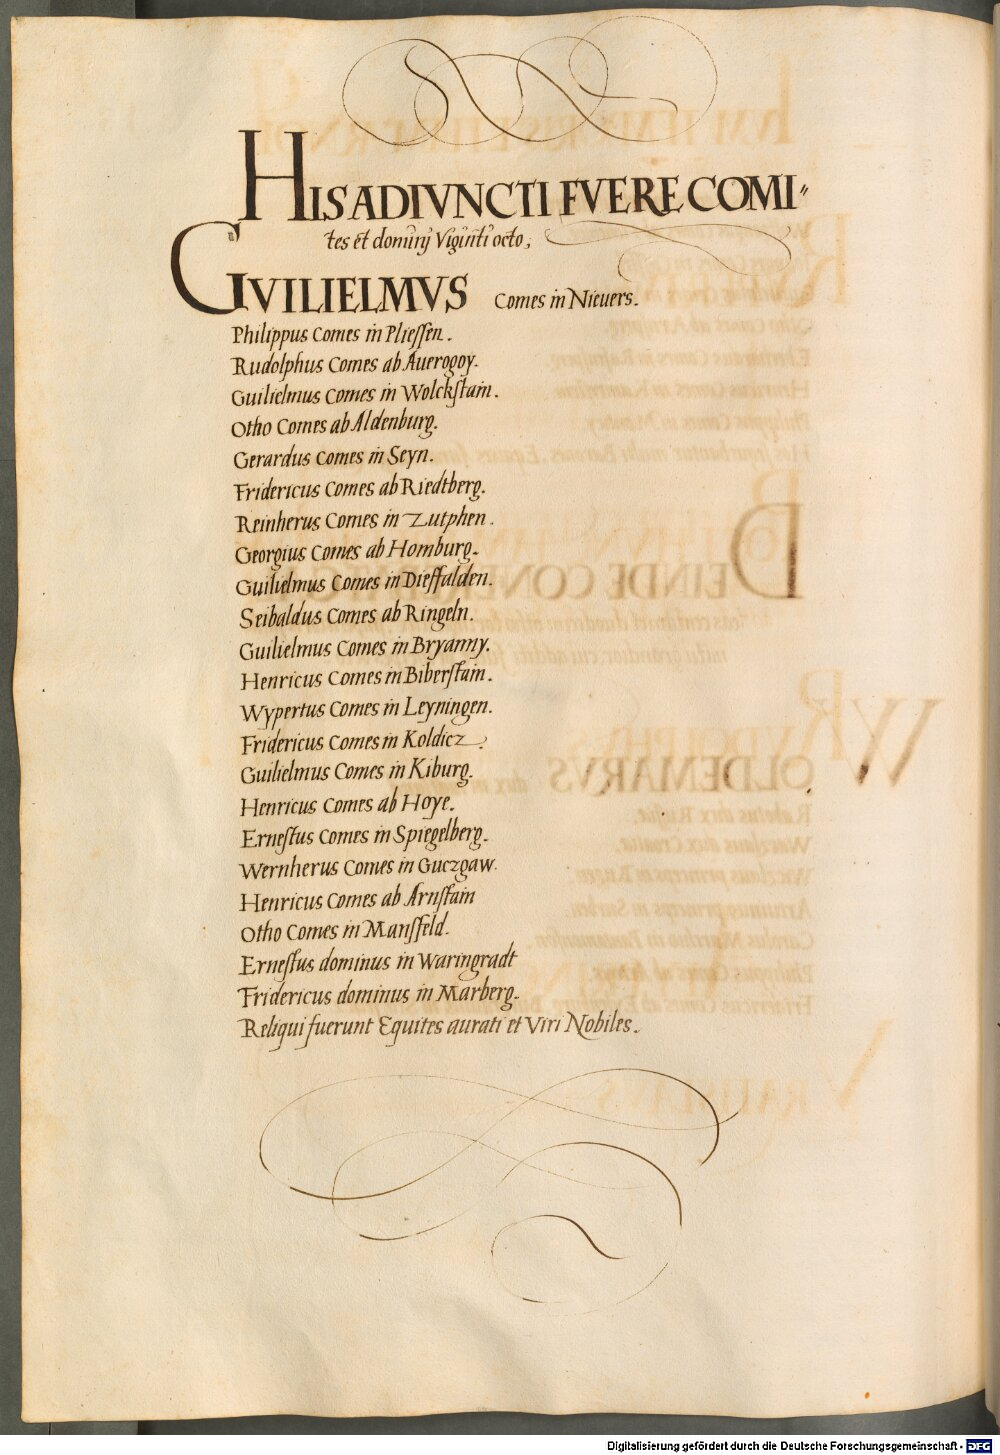 HIS ADIVNCTI FVERE COMI-
tes et dominij Viginti octo,
GVILIELMVS Comes in Nieuers.
Philippus Comes in Pliessen.
Rudolphus Comes ab Auerogoy.
Guilielmus Comes in Wolckstain.
Otho Comes ab Aldenburg.
Gerardus Comes in Seyn.
Fridericus Comes ab Riedtberg.
Reinherus Comes in Zutphen.
Georgius Comes ab Homburg.
Guilielmus Comes in Dieffalden.
Seibaldus Comes ab Ringeln.
Guilielmus Comes in Bryanny.
Henricus Comes in Biberstain.
Wypertus Comes in Leyningen.
Fridericus Comes in Koldicz.
Guilielmus Comes in Kiburg.
Henricus Comes ab Hoye.
Ernestus Comes in Spiegelberg.
Wernherus Comes in Guczgaw.
Henricus Comes ab Arnstain
Otho Comes in Mansfeld.
Ernestus dominus in Waringradt
Fridericus dominus in Marberg.
Reliqui fuerunt Equites aurati et Viri Nobiles.
Digitalisierung gefördert durch die Deutsche Forschungsgemeinschaft - DFG